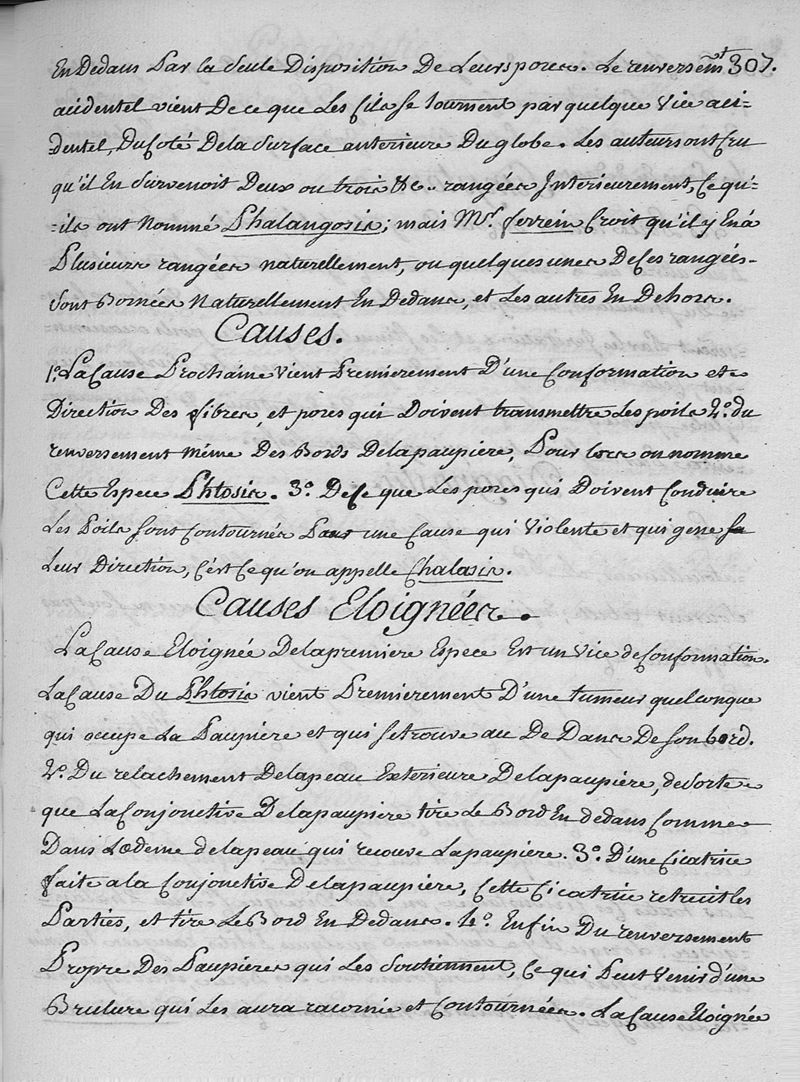 En Dedans Par la Seule Disposition De Leurs pores. Le renversemt 307.
accidentel vient De ce que Les Cils se tournent par quelque Vice aci-
dentel, Du Coté De la Surface anterieure Du globe. Les auteurs ont Cru
qu'il En Survenoit Deux ou trois &c.. rangées Interieurement, Ce qu'-
-ils ont Nommé Phalangosis; mais Mr. ferrein Croit qu'il y En à
Plusieurs rangées naturellement, ou quelques unes De Ces rangées-
Sont Bornées Naturellement En Dedans, et Les autres En Dehors.
Causes.
1.º La Cause Prochaine Vient Premierement D'une Conformation et
Direction Des fibres, et pores qui Doivent transmettre Les poils 2.º du
renversement même Des Bords De la paupière, Pour lors on nomme
Cette Espece Phtosis. 3.º De Ce que Les pores qui Doivent Conduire
Les Poils sont Contournés Par une Cause qui Violente et qui gene
Leur Direction, C'est Ce qu'on appelle Chalasis.
Causes Eloignées.
La Cause Eloignée De la premiere Espece Est un Vice de Conformation.
La Cause Du Phtosis vient Premierement D'une tumeur quelconque
qui occupe La Paupière et qui se trouve au De Dans De son bord.
2.º Du relachement De la peau Exterieure De la paupière, de Sorte
que La Conjonctive De la paupière tire Le Bord En dedans Comme
Dans L'œdeme de la peau qui recouve La paupière. 3.º D'une Cicatrice
faite a la Conjonctive De la paupière, Cette Cicatrice retrecit les
Parties, et tire Le Bord En Dedans. 4.º Enfin Du renversement
Propre Des Paupières qui Les Soutiennent, Ce qui Peut Venir d'une
Brulure qui Les aura racornie et Contournées. La Cause Eloignée